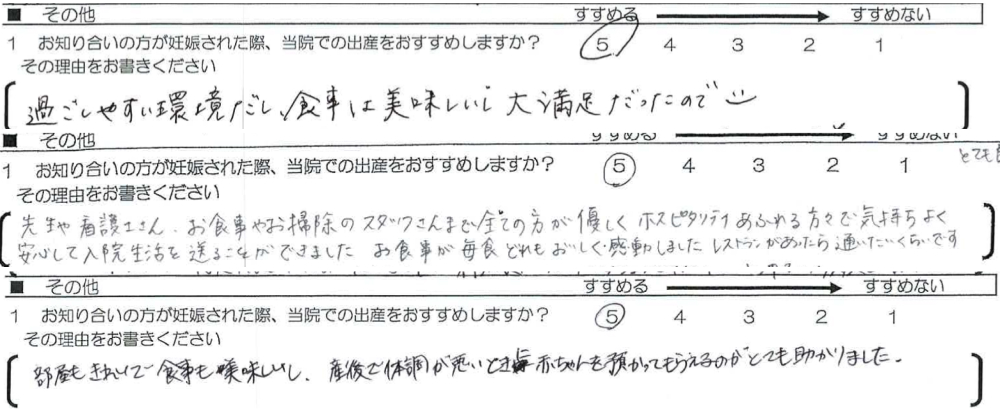 ■ その他 すすめる → すすめない
1 お知り合いの方が妊娠された際、当院での出産をおすすめしますか? 5 4 3 2 1
その理由をお書きください
過ごしやすい環境だし、食事は美味しいし大満足だったので
■ その他 すすめる → すすめない
1 お知り合いの方が妊娠された際、当院での出産をおすすめしますか? 5 4 3 2 1
とても
その理由をお書きください
先生や看護士さん、お食事やお掃除のスタッフさんまで全ての方が優しくホスピタリティあふれる方々で気持ちよく
安心して入院生活を送ることができました お食事が毎食どれもおいしく感動しました レストランがあったら通いたいくらいです
■ その他 すすめる → すすめない
1 お知り合いの方が妊娠された際、当院での出産をおすすめしますか? 5 4 3 2 1
その理由をお書きください
部屋もきれいで食事も美味しいし、産後で体調が悪いとき赤ちゃんを預かってもらえるのがとても助かりました。